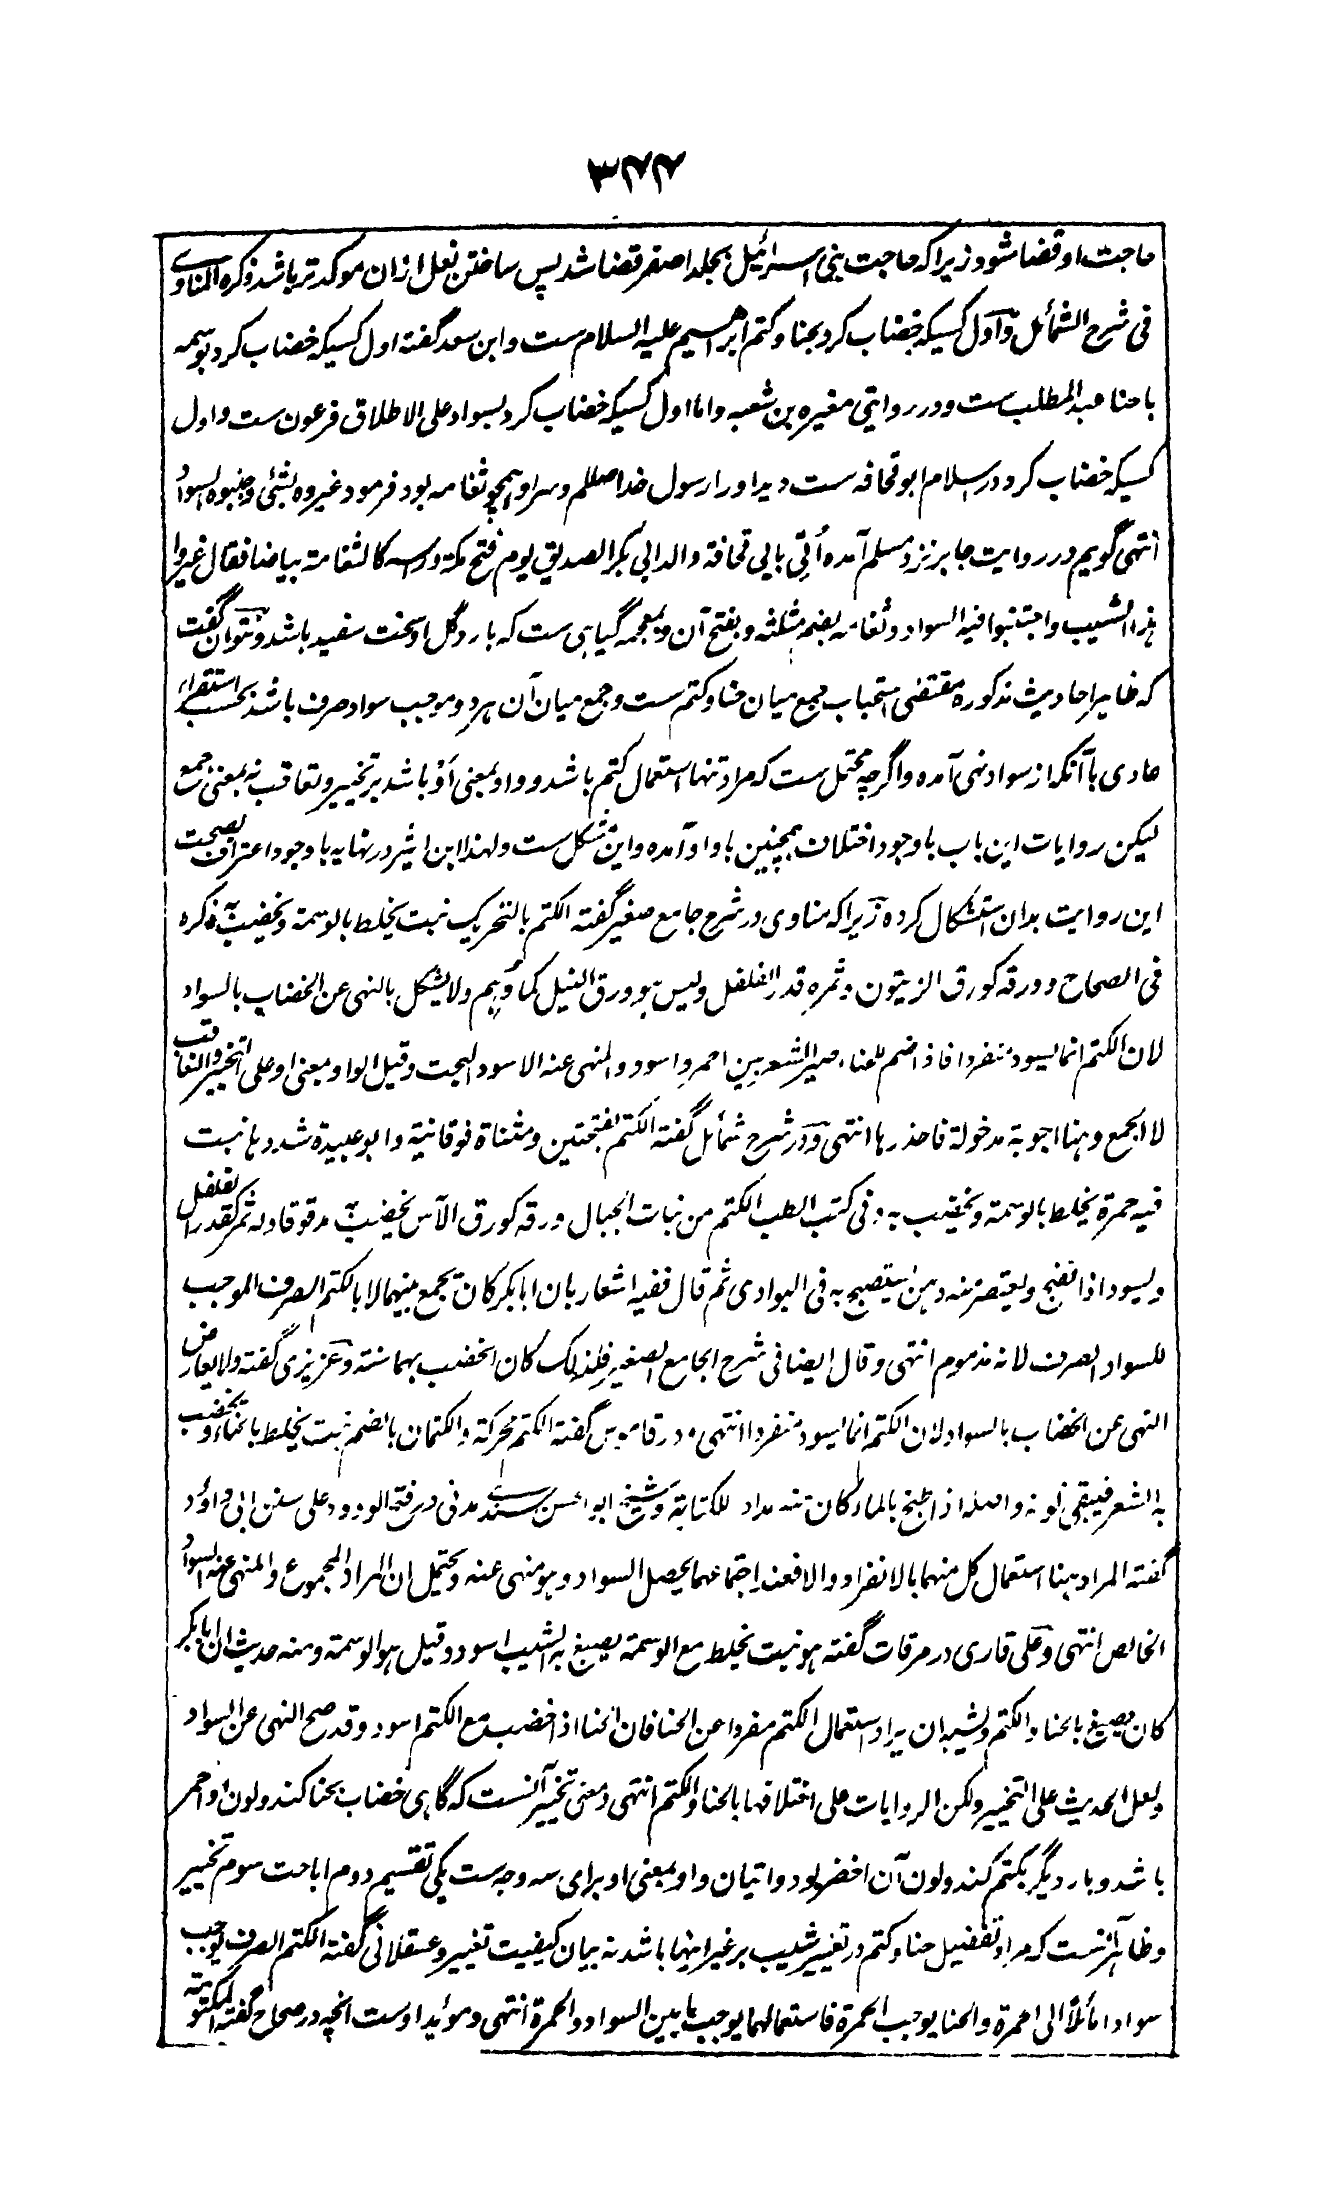 ۳۷۷
حاجت او قضا شود زیرا که حاجت بنی اسرائیل بجلد اصفر قضا شد پس ساختن نعل ازان موکد تر باشد ذکره المناوی
فی شرح الشمائل و اول کسیکه خضاب کرد بحنا و کتم ابراهیم علیه السلام ست و ابن سعد گفته اول کسیکه خضاب کرد بوسمه
با حنا عبد المطلب ست و در روایتی مغیره بن شعبه و اما اول کسیکه خضاب کرد بسواد علی الاطلاق فرعون ست و اول
کسیکه خضاب کرد در اسلام ابو قحافه ست دید او را رسول خدا صللم و سر او همچو ثغامه بود فرمود غیروه بشئی و جنبوه السواد
انتهی گویم در روایت جابر نزد مسلم آمده اُتِیَ بابی قحافة والد ابی بکر الصدیق یوم فتح مکة و راسه کالثغامة بیاضا فقال غیروا
هذا الشیب واجتنبوا فیه السواد و ثغامه بضم مثلثه و بفتح آن و بمعجمه گیاهی ست که بار و گل او سخت سفید باشد و نتوان گفت
که ظاهر احادیث مذکوره مقتضی استحباب جمع میان حنا و کتم ست و جمع میان آن هر دو موجب سواد صرف باشد بحسب استقراء
عادی با آنکه از سواد نهی آمده و اگرچه محتمل ست که مراد تنها استعمال کتم باشد و واو بمعنی اَوْ باشد بر تخییر و تعاقب نه بمعنی جمع
لیکن روایات این باب باوجود اختلاف همچنین با واو آمده و این مشکل ست و لهذا ابن اثیر در نهایه باوجود اعتراف بصحت
این روایت بدان استشکال کرده زیرا که مناوی در شرح جامع صغیر گفته الکتم بالتحریک نبت یخلط بالوسمة و یخضب به ذکره
فی الصحاح و ورقه کورق الزیتون و ثمره قدر الفلفل ولیس هو ورق النیل کما وُهِم ولا یشکل بالنهی عن الخضاب بالسواد
لان الکتم انما یسود منفردا فاذا ضم للحناء صیر الشعر بین احمر و اسود والمنهی عنه الاسود البحت وقیل الواو بمعنی او علی التخییر والتعاقب
لا الجمع وهنا اجوبة مدخولة فاحذرها انتهی و در شرح شمائل گفته الکتم بفتحتین و مثناة فوقانیة و ابو عبیدة شددها نبت
فیه حمرة یخلط بالوسمة و یخضب به و فی کتب الطب الکتم من نبات الجبال ورقه کورق الآس یخضب به مدقوقا وله ثمر کقدر الفلفل
و یسود اذا نضج و یعتصر منه دهن یستصبح به فی البوادی ثم قال ففیه اشعار بان ابا بکر کان یجمع بینهما لا بالکتم الصرف الموجب
للسواد الصرف لانه مذموم انتهی و قال ایضا فی شرح الجامع الصغیر فلذلک کان الخضب بهما سنة و عزیزی گفته ولا یعارض
النهی عن الخضاب بالسواد لان الکتم انما یسود منفردا انتهی و در قاموس گفته الکتم محرکة والکتمان بالضم نبت یخلط بالحناء و یخضب
به الشعر فیبقی لونه و اصله اذا طبخ بالماء کان منه مداد للکتابة و شیخ ابو الحسن سندی مدنی در فتح الودود علی سنن ابی داود
گفته المراد هنا استعمال کل منهما بالانفراد والا فعند اجتماعهما یحصل السواد وهو منهی عنه و یحتمل ان المراد المجموع والمنهی عنه السواد
الخالص انتهی و علی قاری در مرقات گفته هو نبت یخلط مع الوسمة یصبغ به الشیب اسود و قیل هو الوسمة و منه حدیث ان ابا بکر
کان یصبغ بالحنا والکتم و یشبه ان یراد استعمال الکتم مفردا عن الحنا فان الحنا اذا خضب مع الکتم اسود و قد صح النهی عن السواد
ولعل الحدیث علی التخییر ولکن الروایات علی اختلافها بالحنا والکتم انتهی و معنی تخییر آنست که گاهی خضاب بحنا کند و لون او احمر
باشد و بار دیگر بکتم کند و لون آن اخضر بود و اتیان واو بمعنی او برای سه وجه ست یکی تقسیم دوم اباحت سوم تخییر
و ظاهر آنست که مراد تفضیل حنا و کتم در تغییر شیب بر غیر اینها باشد نه بیان کیفیت تغییر و عسقلانی گفته الکتم الصرف یوجب
سوادا مائلاً الی الحمرة والحنا یوجب الحمرة فاستعمالهما یوجب ما بین السواد والحمرة انتهی و مؤید اوست انچه در صحاح گفته المکتومة